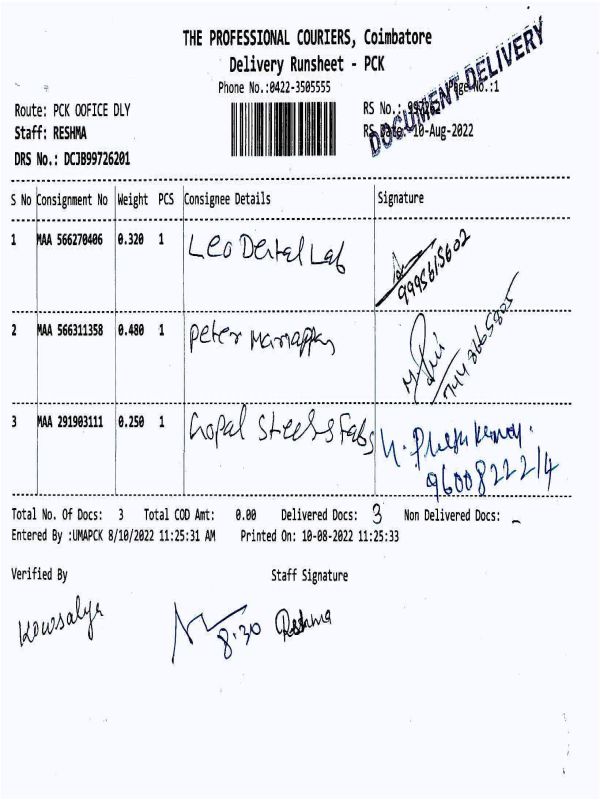 THE PROFESSIONAL COURIERS, Coimbatore
Delivery Runsheet - PCK
DOCUMENT DELIVERY
Phone No.:0422-3505555
Page No.:1
Route: PCK OOFICE DLY
RS No.:
Staff: RESHMA
RS Date: 10-Aug-2022
DRS No.: DCJB99726201
S No Consignment No Weight PCS Consignee Details Signature
1 MAA 566270406 0.320 1 Leo Dental Lab
9995615602
2 MAA 566311358 0.480 1 Peter Mariappan
3 MAA 291903111 0.250 1 Gopal Steels Fabs
9600822214
Total No. Of Docs: 3 Total COD Amt: 0.00 Delivered Docs: 3 Non Delivered Docs: -
Entered By :UMAPCK 8/10/2022 11:25:31 AM Printed On: 10-08-2022 11:25:33
Verified By Staff Signature
Kowsalya 8.30 Reshma